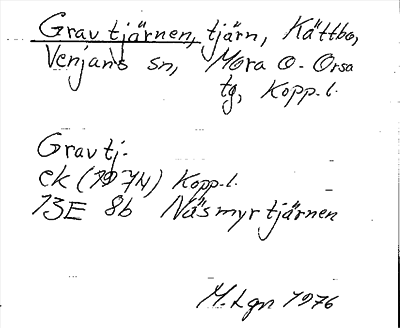 Gravtjärnen, tjärn, Kättbo,
Venjans sn, Mora o. Orsa
tg, Kopp.l.
Gravtj.
ek (1974) Kopp.l.
13E 8b Näsmyrtjärnen
M.Lgn 1976